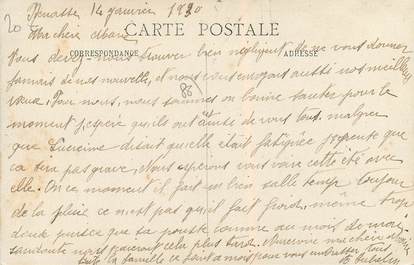 20
14 janvier 1920
CARTE POSTALE
Ma chère
CORRESPONDANCE
ADRESSE
Vous devez nous trouver bien négligent de ne vous donner
jamais de nos nouvelle, et nous vous envoyons aussi nos meilleurs
vœux. Pour nous, nous sommes en bonne santée pour le
moment j'espère qu'ils ont de vous tous, malgrer
que Lucienne disait qu'elle était fatiguée j'espère que
ca sera pas grave, Nous esperons vous voire cette été avec
elle. En ce moment il fait un bien salle temp toujour
de la pluie ce n'est pas qu'il fait froid, même trop
doux puisce que sa pousse comme au mois de mai
sandoute nous cela plus tard. ma chère
toute la famille ce joint a mois pour vous embrasser tous
86